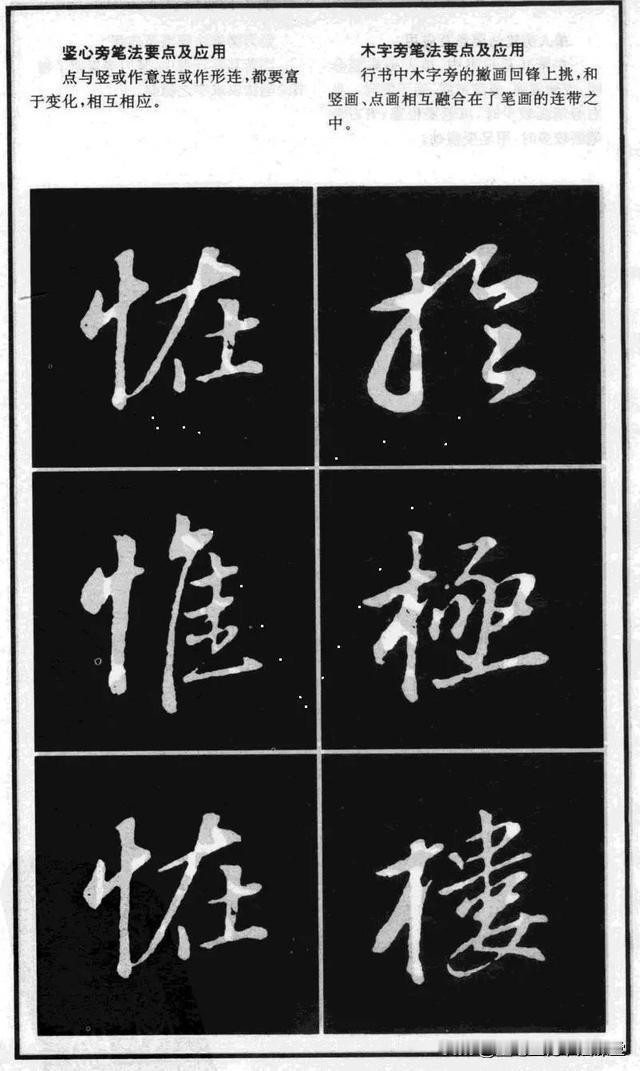 竖心旁笔法要点及应用
点与竖或作意连或作形连，都要富
于变化，相互相应。
恠
惟
恠
木字旁笔法要点及应用
行书中木字旁的撇画回锋上挑，和
竖画、点画相互融合在了笔画的连带之
中。
於
極
樓